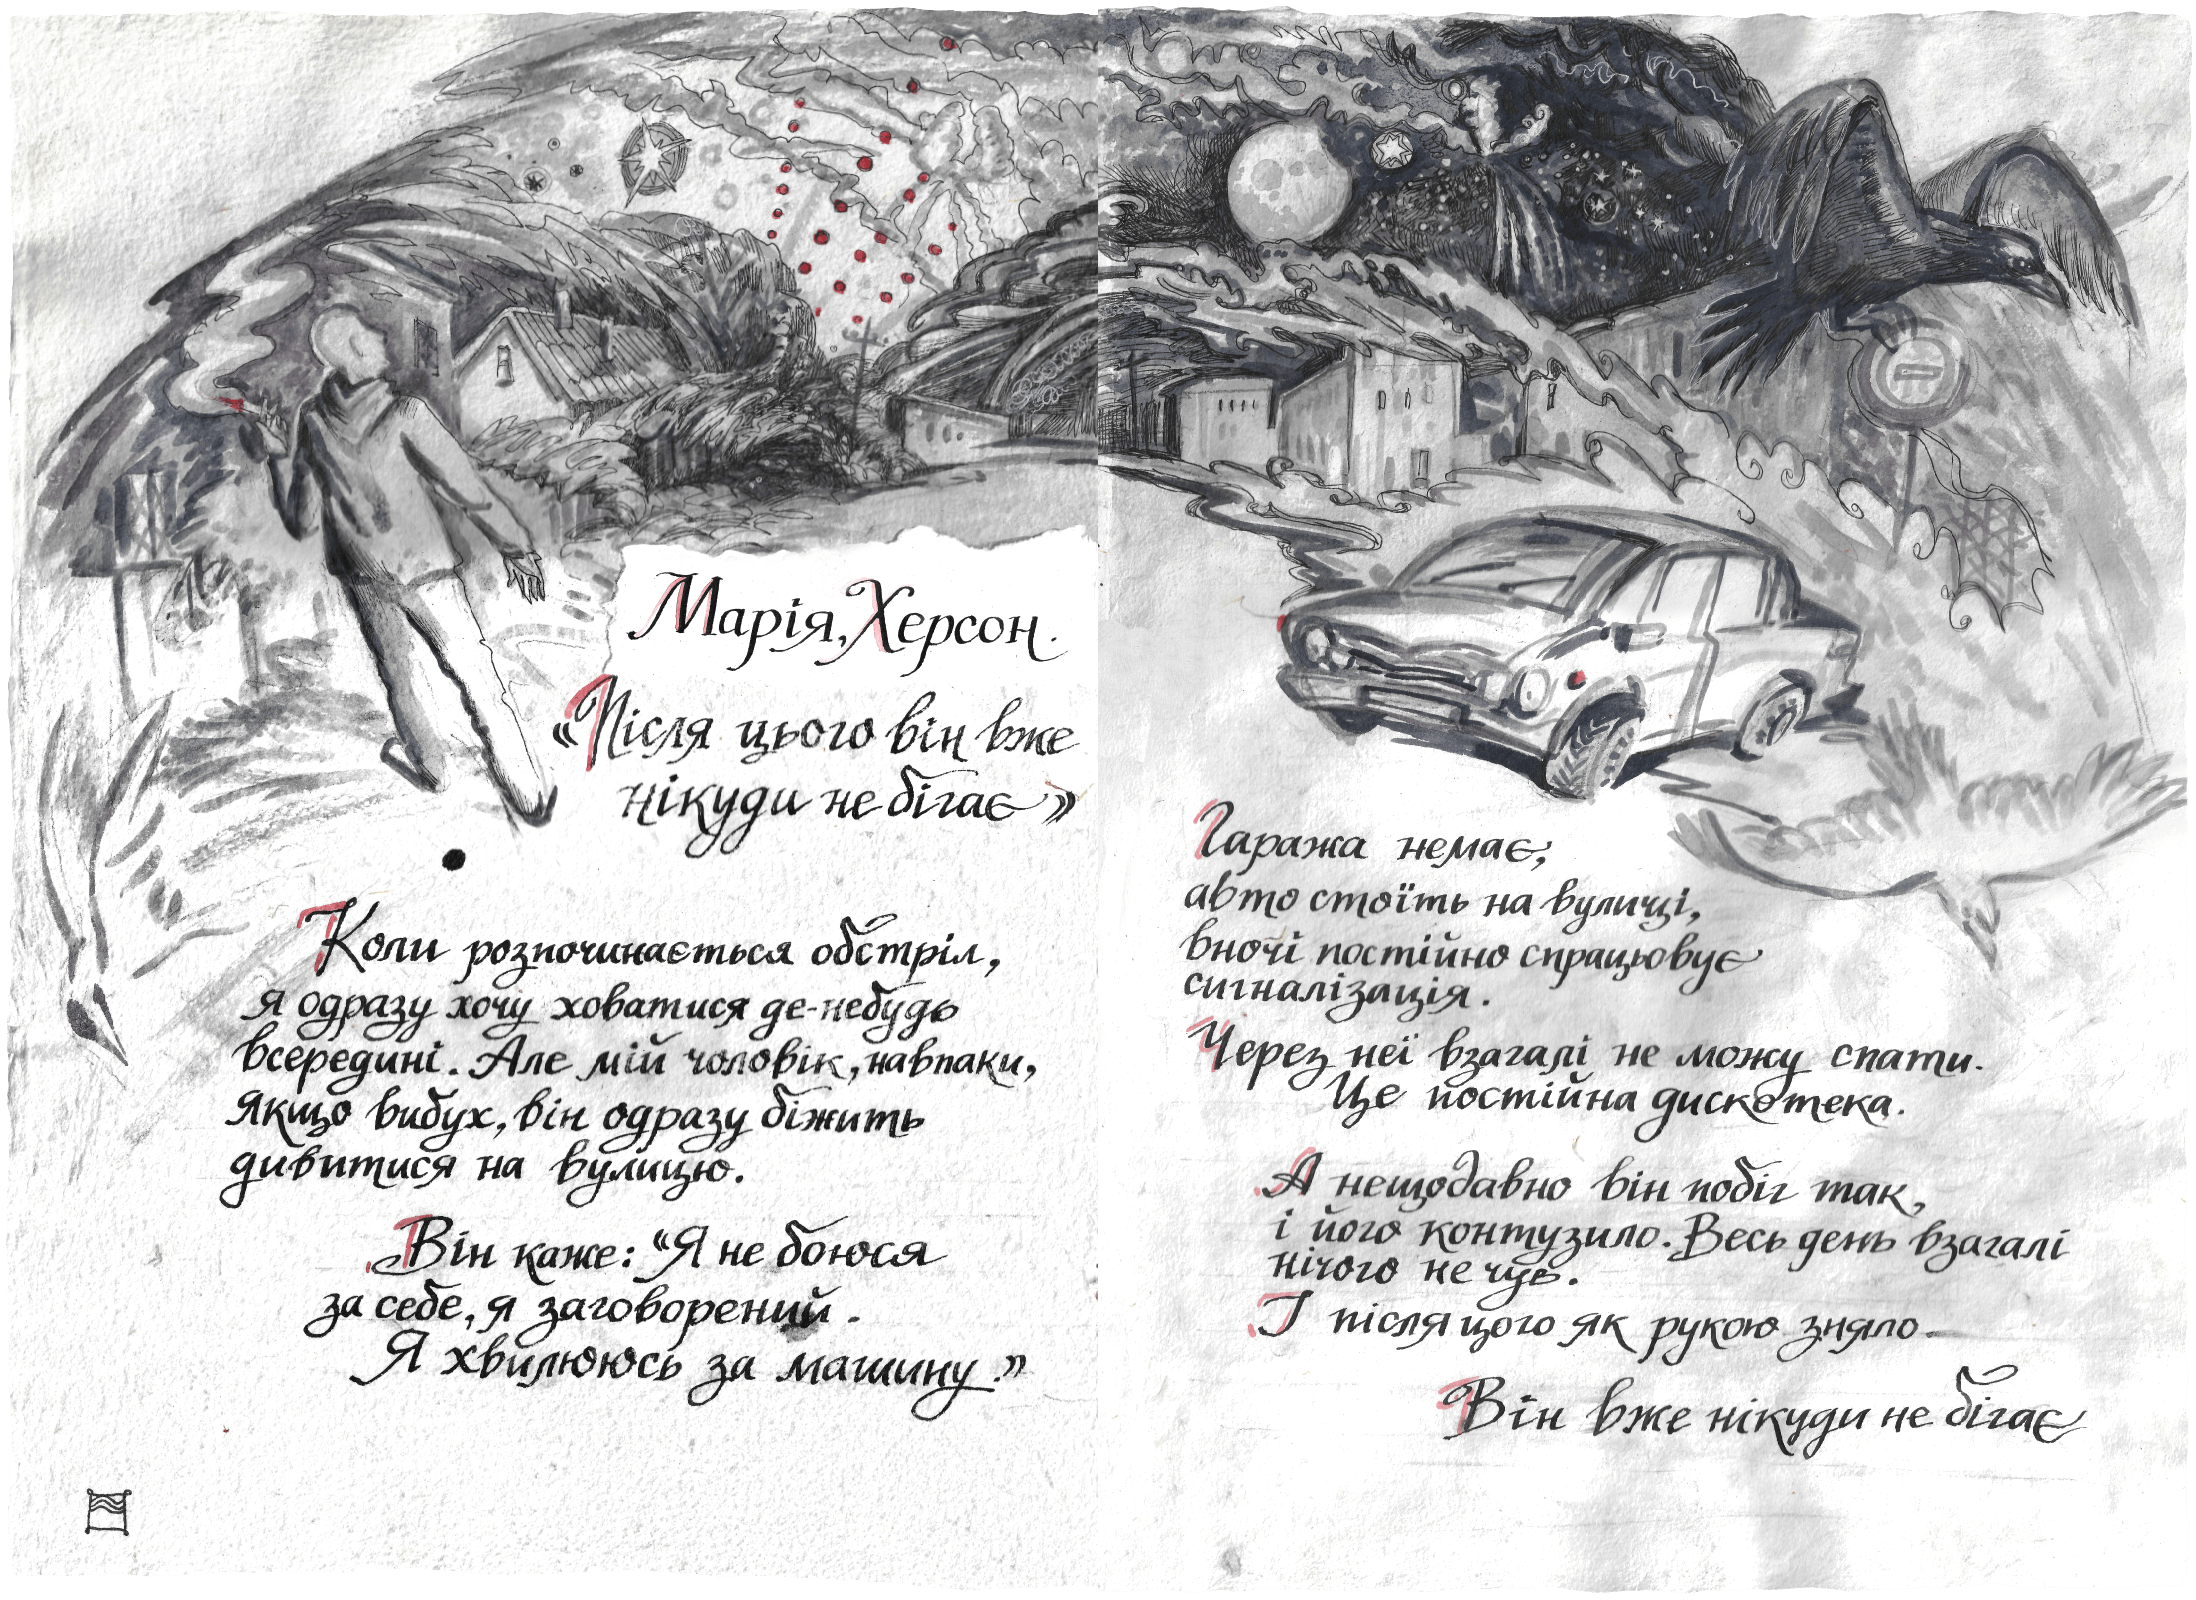 Марія, Херсон.
«Після цього він вже
нікуди не бігає»
Коли розпочинається обстріл,
я одразу хочу ховатися де-небудь
всередині. Але мій чоловік, навпаки,
якщо вибух, він одразу біжить
дивитися на вулицю.
Він каже: "Я не боюся
за себе, я заговорений.
Я хвилююсь за машину."
Гаража немає;
авто стоїть на вулиці,
вночі постійно спрацьовує
сигналізація.
Через неї взагалі не можу спати.
Це постійна дискотека.
А нещодавно він побіг так,
і його контузило. Весь день взагалі
нічого не чув.
І після цого як рукою зняло.
Він вже нікуди не бігає